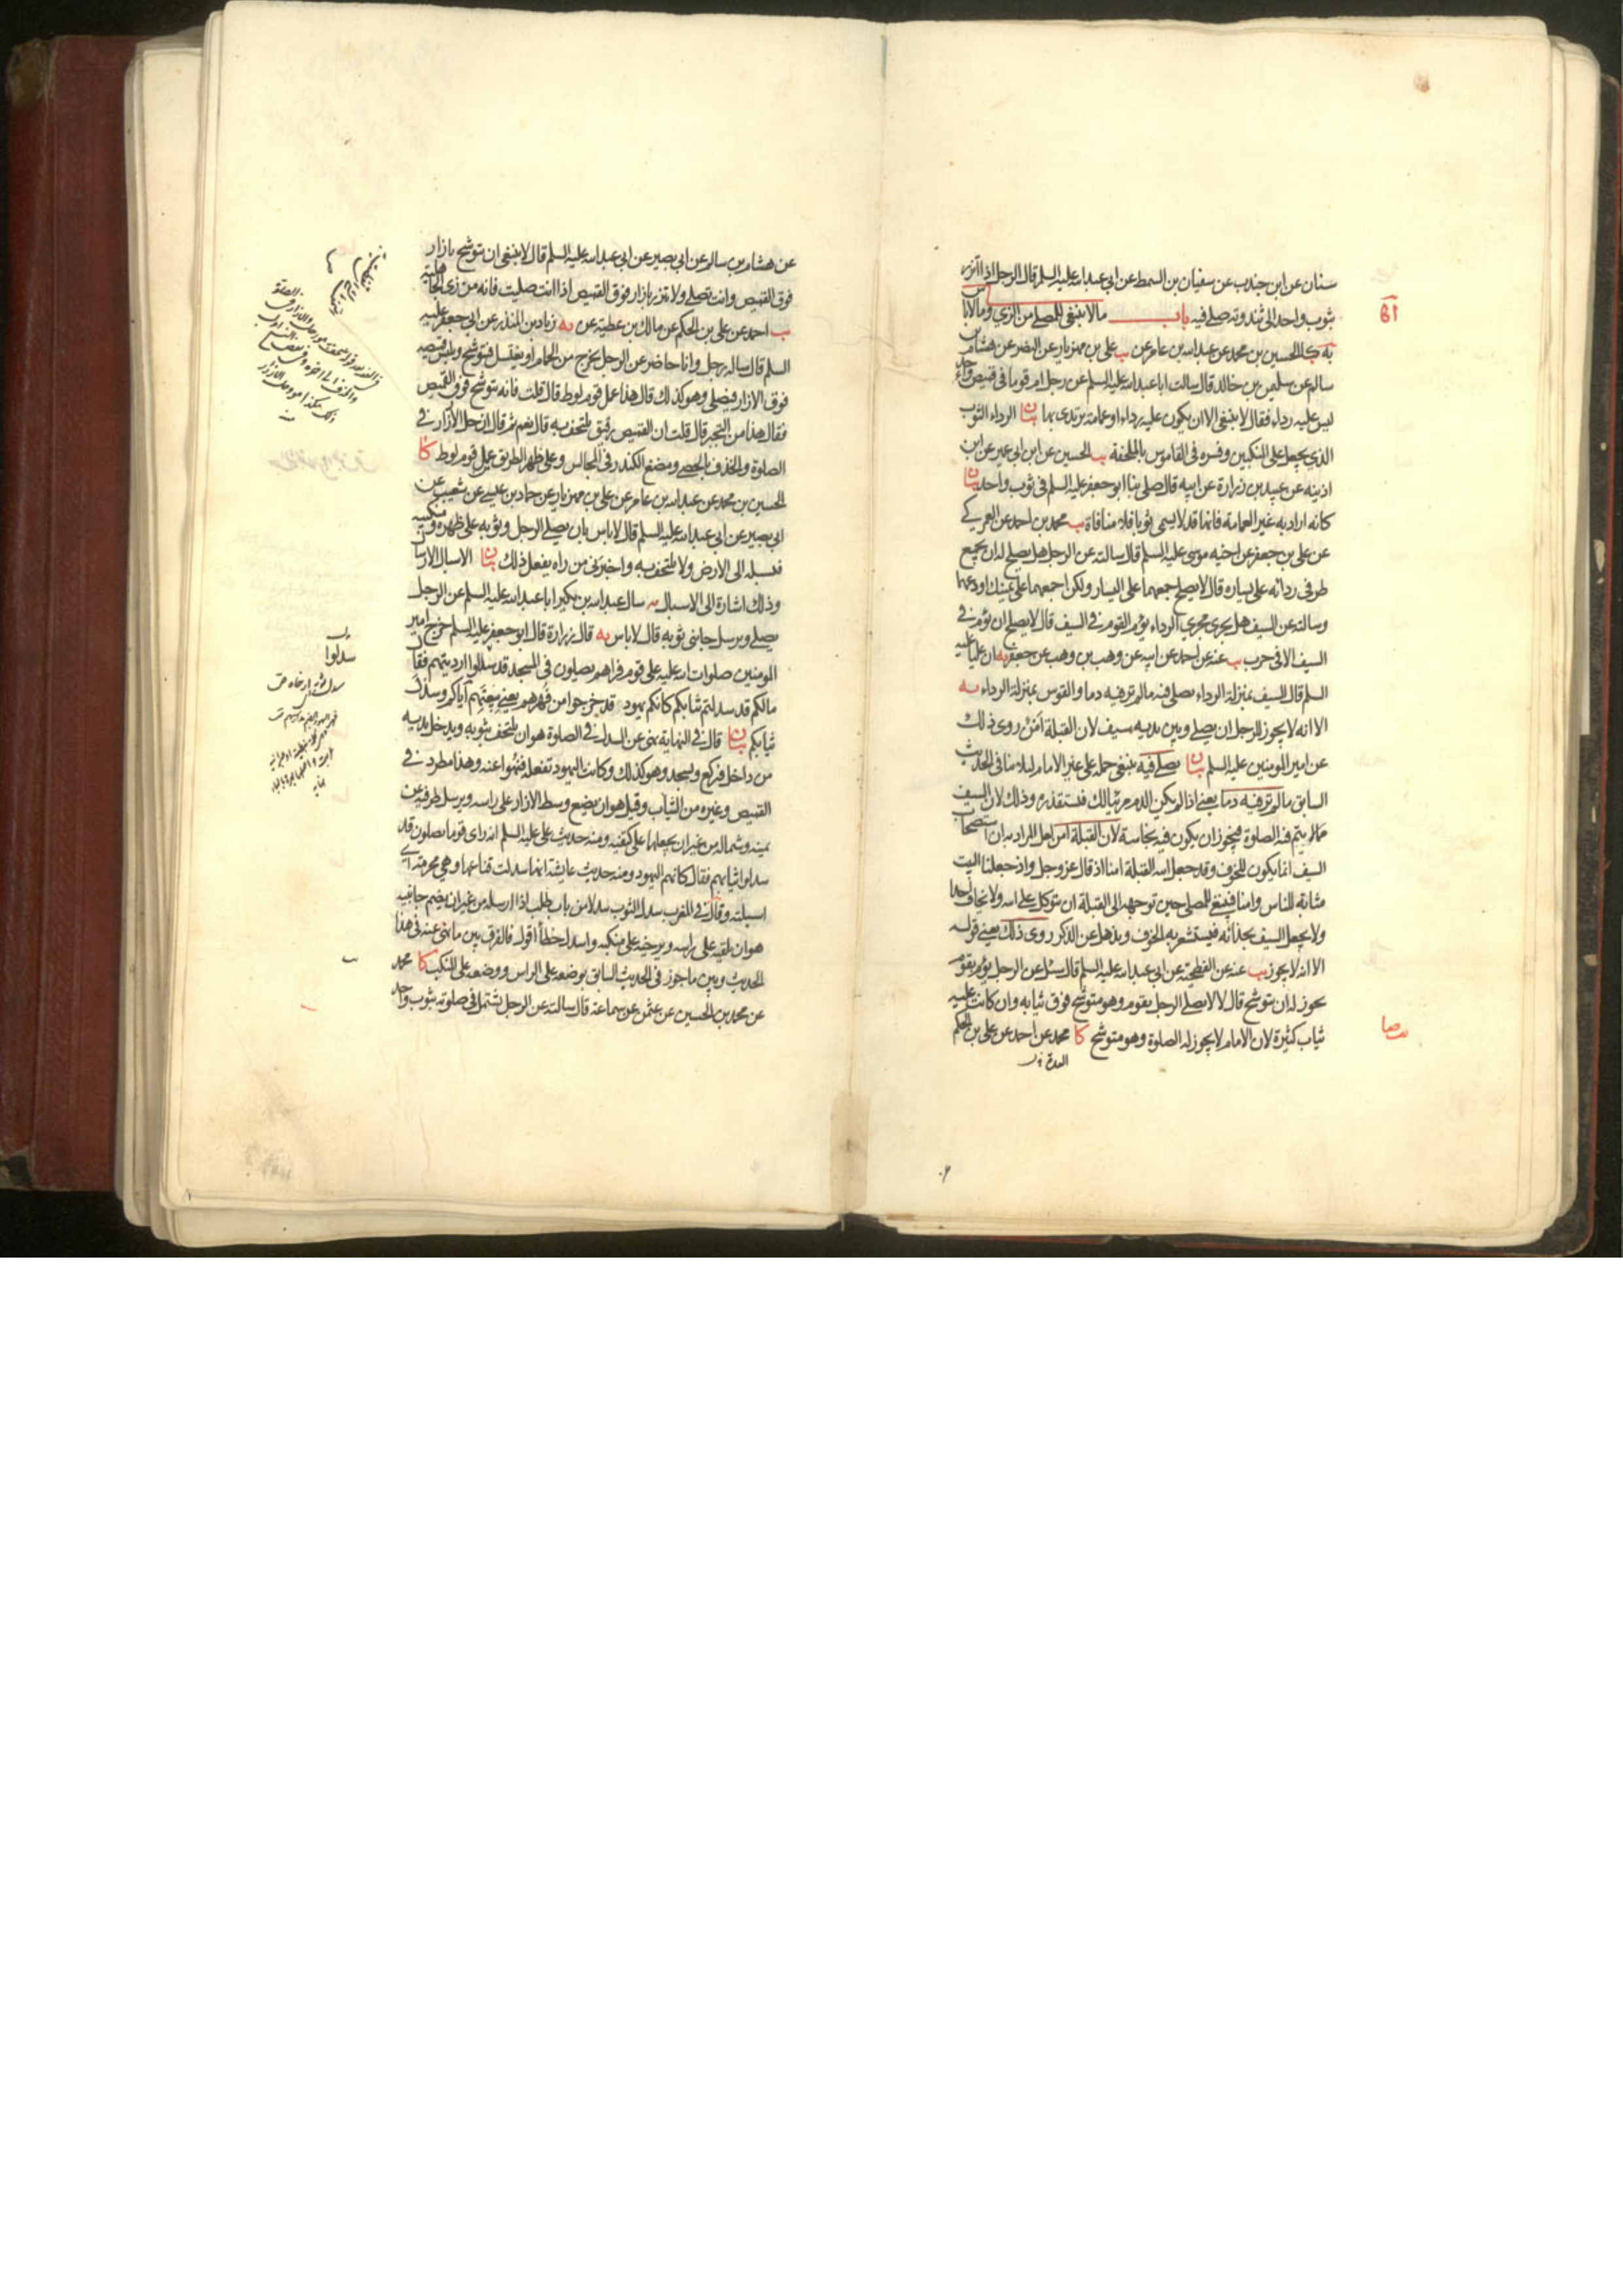 سنان عن ابن جندب عن سفيان بن السمط عن ابي عبد الله عليه السلم قال الرجل اذا اتزر
بثوب واحد الى ثندوته صلى فيه باب ما لا ينبغي للمصلي من الزي وما لا باس
به كا الحسين بن محمد عن عبد الله بن عامر عن يب علي بن مهزيار عن النضر عن هشام بن
سالم عن سليمن بن خالد قال سالت ابا عبد الله عليه السلم عن رجل ام قوما في قميص واحد
ليس عليه رداء فقال لا ينبغي الا ان يكون عليه رداء او عمامة يرتدى بها بيان الرداء الثوب
الذي يجعل على المنكبين وفسره في القاموس بالملحفة يب الحسين عن ابن ابي عمير عن ابن
اذينه عن عبيد بن زرارة عن ابيه قال صلى بنا ابو جعفر عليه السلم في ثوب واحد بيان
كانه اراد به غير العمامة فانها قد لا يسمى ثوبا فلا منافاة يب محمد بن احمد عن العمركي
عن علي بن جعفر عن اخيه موسى عليه السلم قال سالته عن الرجل هل يصلح له ان يجمع
طرفي ردائه على يساره قال لا يصلح جمعهما على اليسار ولكن اجمعهما على يمينك او دعهما
وسالته عن السيف هل يجري مجري الرداء يؤم القوم في السيف قال لا يصلح ان يؤم في
السيف الا في حرب يب عنه عن احمد عن ابيه عن وهب بن وهب عن جعفر به ان عليا عليه
السلم قال السيف بمنزلة الرداء يصلى فيه ما لم تر فيه دما والقوس بمنزلة الرداء به
الا انه لا يجوز للرجل ان يصلي وبين يديه سيف لان القبلة امن روى ذلك
عن امير المومنين عليه السلم بيان يصلي فيه ينبغي حمله على غير الامام لما في الحديث
السابق ما لم تر فيه دما يعني اذا لم يكن الدم مرئيا لك فتستقذره وذلك لان السيف
مما لا يتم فيه الصلوة فيجوز ان يكون فيه نجاسة لان القبلة امن لعل المراد به ان استصحاب
السيف انما يكون للخوف وقد جعل الله القبلة امنا اذ قال عز وجل واذ جعلنا البيت
مثابة للناس وامنا فينبغي للمصلي حين توجهه الى القبلة ان يتوكل على الله ولا يخاف احدا
ولا يجعل السيف بحذائه فيستشعر به الخوف ويذهل عن الذكر روى ذلك يعني قوله
الا انه لا يجوز يب عنه عن الفطحية عن ابي عبد الله عليه السلم قال سئل عن الرجل يؤم بقوم
يجوز له ان يتوشح قال لا لا يصلي الرجل بقوم وهو متوشح فوق ثيابه وان كانت عليه
ثياب كثيرة لان الامام لا يجوز له الصلوة وهو متوشح كا محمد عن احمد عن علي بن الحكم
عن هشام بن سالم عن ابي بصير عن ابي عبد الله عليه السلم قال لا ينبغي ان يتوشح بازار
فوق القميص وانت تصلي ولا تتزر بازار فوق القميص اذا انت صليت فانه من زي الجاهلية
يب احمد عن علي بن الحكم عن مالك بن عطية عن به زياد بن المنذر عن ابي جعفر عليه
السلم قال ساله رجل وانا حاضر عن الرجل يخرج من الحمام او يغتسل فيتوشح ويلبس قميصه
فوق الازار فيصلي وهو كذلك قال هذا عمل قوم لوط قال قلت فانه يتوشح فوق القميص
فقال هذا من التجبر قال قلت ان القميص رقيق يلتحف به قال نعم ثم قال ان حل الازرار في
الصلوة والخذف بالحصى ومضغ الكندر في المجالس وعلى ظهر الطريق عمل قوم لوط كا
الحسين بن محمد عن عبد الله بن عامر عن علي بن مهزيار عن حماد بن عيسى عن شعيب عن
ابي بصير عن ابي عبد الله عليه السلم قال لا باس بان يصلي الرجل وثوبه على ظهره ومنكبيه
فيسبله الى الارض ولا يلتحف به واخبرني من راه يفعل ذلك بيان الاسبال الارسال
وذلك اشارة الى الاسبال به سال عبد الله بن بكير ابا عبد الله عليه السلم عن الرجل
يصلي ويرسل جانبي ثوبه قال لا باس به قال زرارة قال ابو جعفر عليه السلم خرج امير
المومنين صلوات الله عليه على قوم فراهم يصلون في المسجد قد سدلوا ارديتهم فقال
مالكم قد سدلتم ثيابكم كانكم يهود قد خرجوا من فهرهم يعني بيعتهم اياكم وسدل
ثيابكم بيان قال في النهاية نهى عن السدل في الصلوة هو ان يلتحف بثوبه ويدخل يديه
من داخل فيركع ويسجد وهو كذلك وكانت اليهود تفعله فنهوا عنه وهذا مطرد في
القميص وغيره من الثياب وقيل هو ان يضع وسط الازار على راسه ويرسل طرفيه عن
يمينه وشماله من غير ان يجعلها على كتفيه ومنه حديث علي عليه السلم انه راى قوما يصلون قد
سدلوا ثيابهم فقال كانهم اليهود ومنه حديث عايشة انها سدلت قناعها وهي محرمة اي
اسبلته وقال في المغرب سدل الثوب سدلا من باب طلب اذا ارسله من غير ان يضم جانبيه
هو ان يلقيه على راسه ويرخيه على منكبيه واسدل خطأ اقول فالفرق بين ما نهى عنه في هذا
الحديث وبين ما جوز في الحديث السابق بوضعه على الراس ووضعه على المنكب كا محمد
عن محمد بن الحسين عن عثمن عن سماعة قال سالته عن الرجل يشتمل في صلوته بثوب واحد